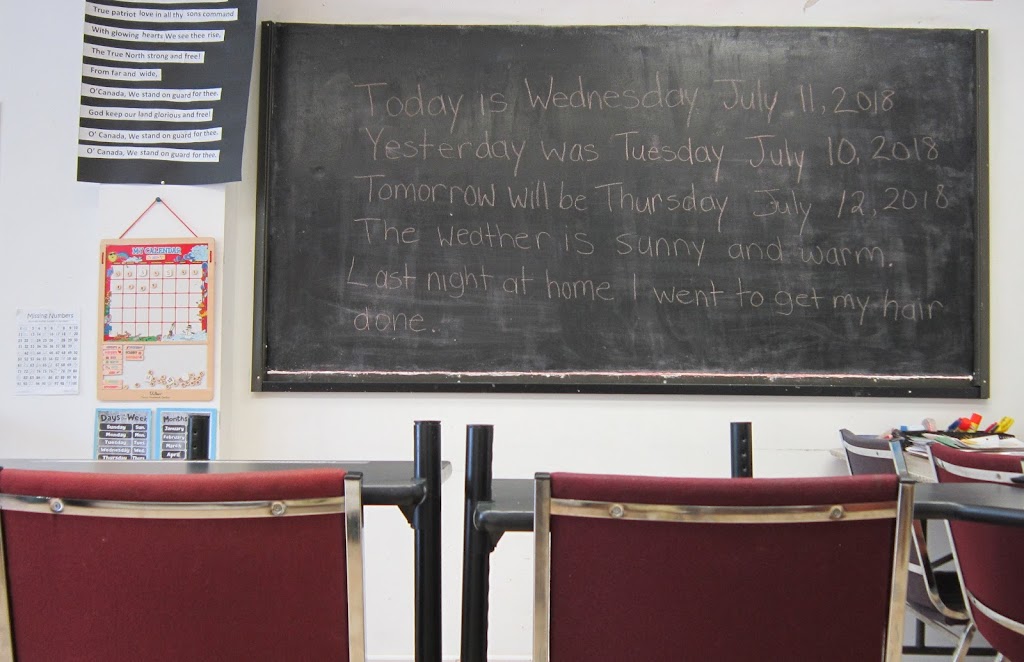 True patriot love in all thy sons command
With glowing hearts We see thee rise,
The True North strong and free!
From far and wide,
O'Canada, We stand on guard for thee.
God keep our land glorious and free!
O' Canada, We stand on guard for thee.
O' Canada, We stand on guard for thee.
Today is Wednesday July 11, 2018
Yesterday was Tuesday July 10, 2018
Tomorrow will be Thursday July 12, 2018
The weather is sunny and warm.
Last night at home I went to get my hair
done.
MY CALENDAR
Missing Numbers
Days of the Week
Sunday Sun.
Monday Mon.
Tuesday Tues.
Wednesday Wed.
Thursday Thurs.
Months
January
February
March
April